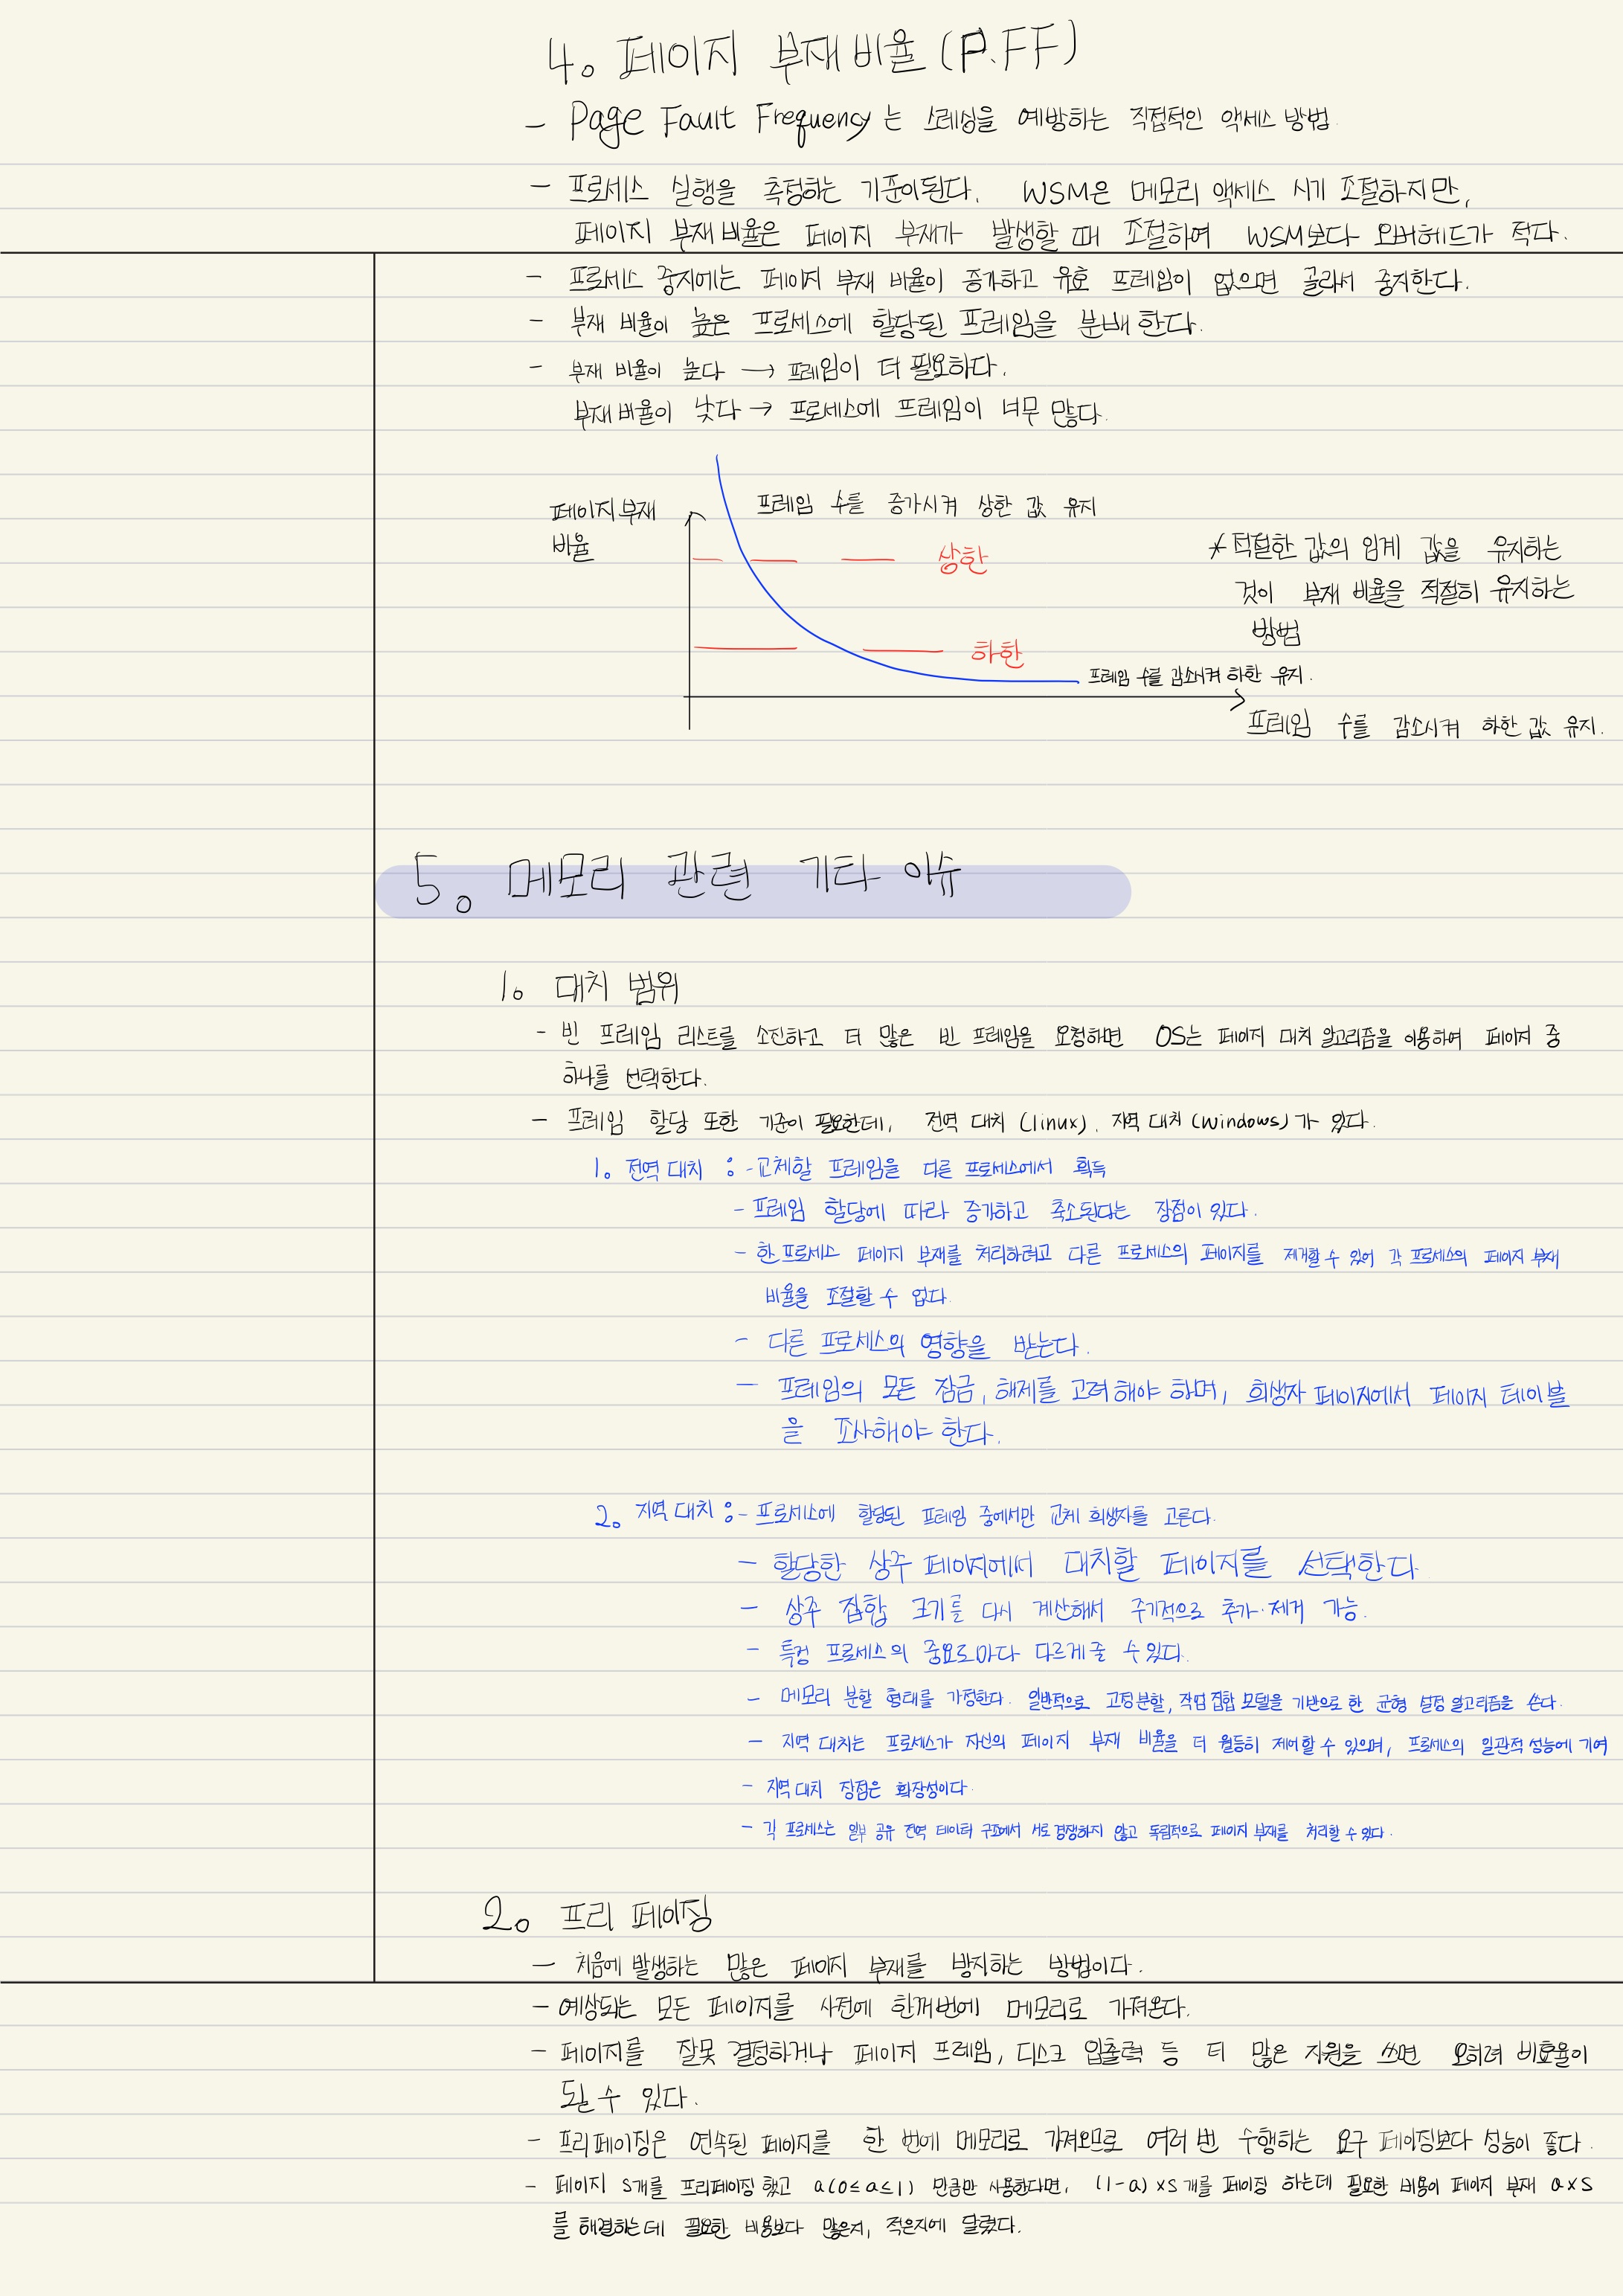 4. 페이지 부재 비율 (P.FF)
- Page Fault Frequency 는 스레싱을 예방하는 직접적인 액세스 방법.
- 프로세스 실행을 측정하는 기준이된다. WSM은 메모리 액세스 시기 조절하지만,
페이지 부재 비율은 페이지 부재가 발생할 때 조절하여 WSM보다 오버헤드가 적다.
- 프로세스 중지에는 페이지 부재 비율이 증가하고 유효 프레임이 없으면 골라서 중지한다.
- 부재 비율이 높은 프로세스에 할당된 프레임을 분배 한다.
- 부재 비율이 높다 → 프레임이 더 필요하다.
부재 비율이 낮다 → 프로세스에 프레임이 너무 많다.
페이지 부재
비율
프레임 수를 증가시켜 상한 값 유지
상한
하한
프레임 수를 감소시켜 하한 유지.
프레임 수를 감소시켜 하한 값 유지.
* 적절한 값의 임계 값을 유지하는
것이 부재 비율을 적절히 유지하는
방법
5. 메모리 관련 기타 이슈
1. 대치 범위
- 빈 프레임 리스트를 소진하고 더 많은 빈 프레임을 요청하면 OS는 페이지 대치 알고리즘을 이용하여 페이지 중
하나를 선택한다.
- 프레임 할당 또한 기준이 필요한데, 전역 대치 (linux), 지역 대치 (windows)가 있다.
1. 전역 대치 : - 교체할 프레임을 다른 프로세스에서 획득
- 프레임 할당에 따라 증가하고 축소된다는 장점이 있다.
- 한 프로세스 페이지 부재를 처리하려고 다른 프로세스의 페이지를 제거할 수 있어 각 프로세스의 페이지 부재
비율을 조절할 수 없다.
- 다른 프로세스의 영향을 받는다.
- 프레임의 모든 잠금, 해제를 고려해야 하며, 희생자 페이지에서 페이지 테이블
을 조사해야 한다.
2. 지역 대치 : - 프로세스에 할당된 프레임 중에서만 교체 희생자를 고른다.
- 할당한 상주 페이지에서 대치할 페이지를 선택한다
- 상주 집합 크기를 다시 계산해서 주기적으로 추가·제거 가능.
- 특정 프로세스의 중요도마다 다르게 줄 수 있다.
- 메모리 분할 형태를 가정한다. 일반적으로 고정 분할, 작업 집합 모델을 기반으로 한 균형 설정 알고리즘을 쓴다.
- 지역 대치는 프로세스가 자신의 페이지 부재 비율을 더 월등히 제어할 수 있으며, 프로세스의 일관적 성능에 기여
- 지역 대치 장점은 확장성이다.
- 각 프로세스는 일부 공유 전역 데이터 구조에서 서로 경쟁하지 않고 독립적으로 페이지 부재를 처리할 수 있다.
2. 프리 페이징
- 처음에 발생하는 많은 페이지 부재를 방지하는 방법이다.
- 예상되는 모든 페이지를 사전에 한꺼번에 메모리로 가져온다.
- 페이지를 잘못 결정하거나 페이지 프레임, 디스크 입출력 등 더 많은 자원을 쓰면 오히려 비효율이
될 수 있다.
- 프리페이징은 연속된 페이지를 한 번에 메모리로 가져오므로 여러 번 수행하는 요구 페이징보다 성능이 좋다.
- 페이지 S개를 프리페이징 했고 a(0≤a≤1) 만큼만 사용한다면, (1-a)×S개를 페이징 하는데 필요한 비용이 페이지 부재 a×S
를 해결하는데 필요한 비용보다 많은지, 적은지에 달렸다.